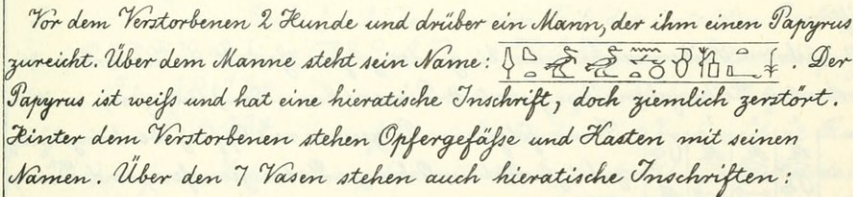 Vor dem Verstorbenen 2 Hunde und drüber ein Mann, der ihm einen Papyrus
zureicht. Über dem Manne steht sein Name: . Der
Papyrus ist weiſs und hat eine hieratische Inschrift, doch ziemlich zerstört.
Hinter dem Verstorbenen stehen Opfergefäſse und Kasten mit seinen
Namen. Über den 7 Vasen stehen auch hieratische Inschriften: